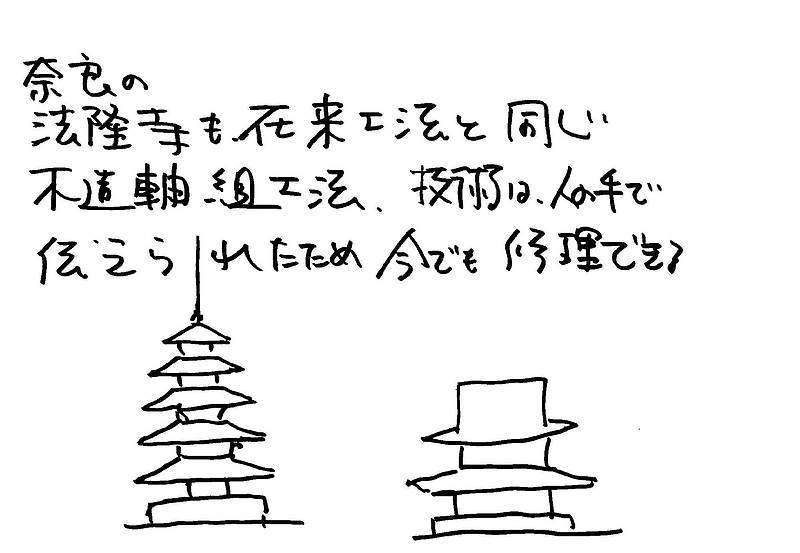 奈良の
法隆寺も、在来工法と同じ
木造軸組工法、技術は、人の手で
伝えられたため今でも修理できる